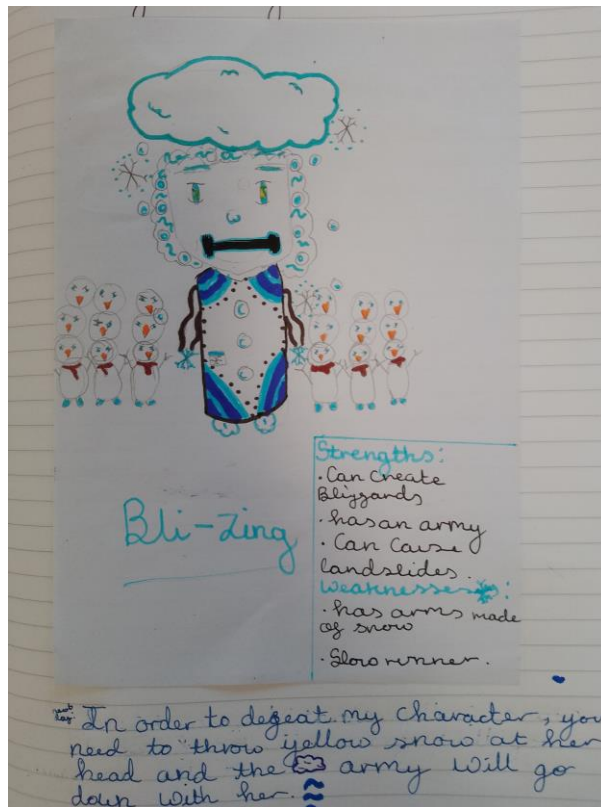 Bli-Zing
Strengths:
• Can Create
Blizzards
• has an army
• Can Cause
landslides.
Weaknesses:
• has arms made
of snow
• Slow runner.
In order to defeat my character, you
need to throw yellow snow at her
head and the army will go
down with her.